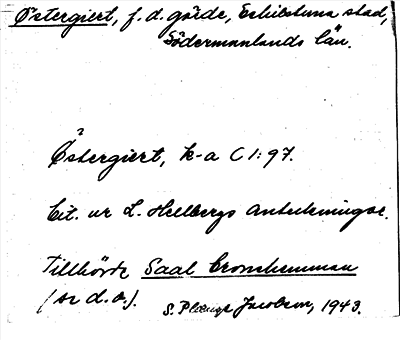 Östergiert, f.d. gärde, Eskilstuna stad,
Södermanlands län.
Östergiert, k-a C 1:97.
Cit. ur L. Hellbergs anteckningar.
Tillhörde Saal Cronehemman
(se d.o.).
S. Jacobson, 1943.